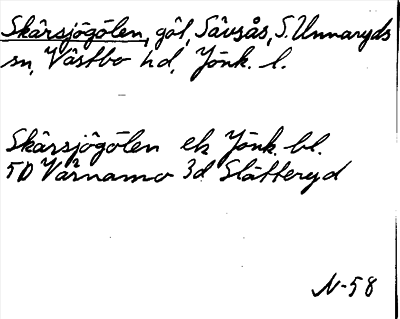 Skärsjögölen, göl, Sävsås, S. Unnaryds
sn, Västbo hd, Jönk. l.
Skärsjögölen ek Jönk. bl.
5D Värnamo 3d Slätteryd
N-58